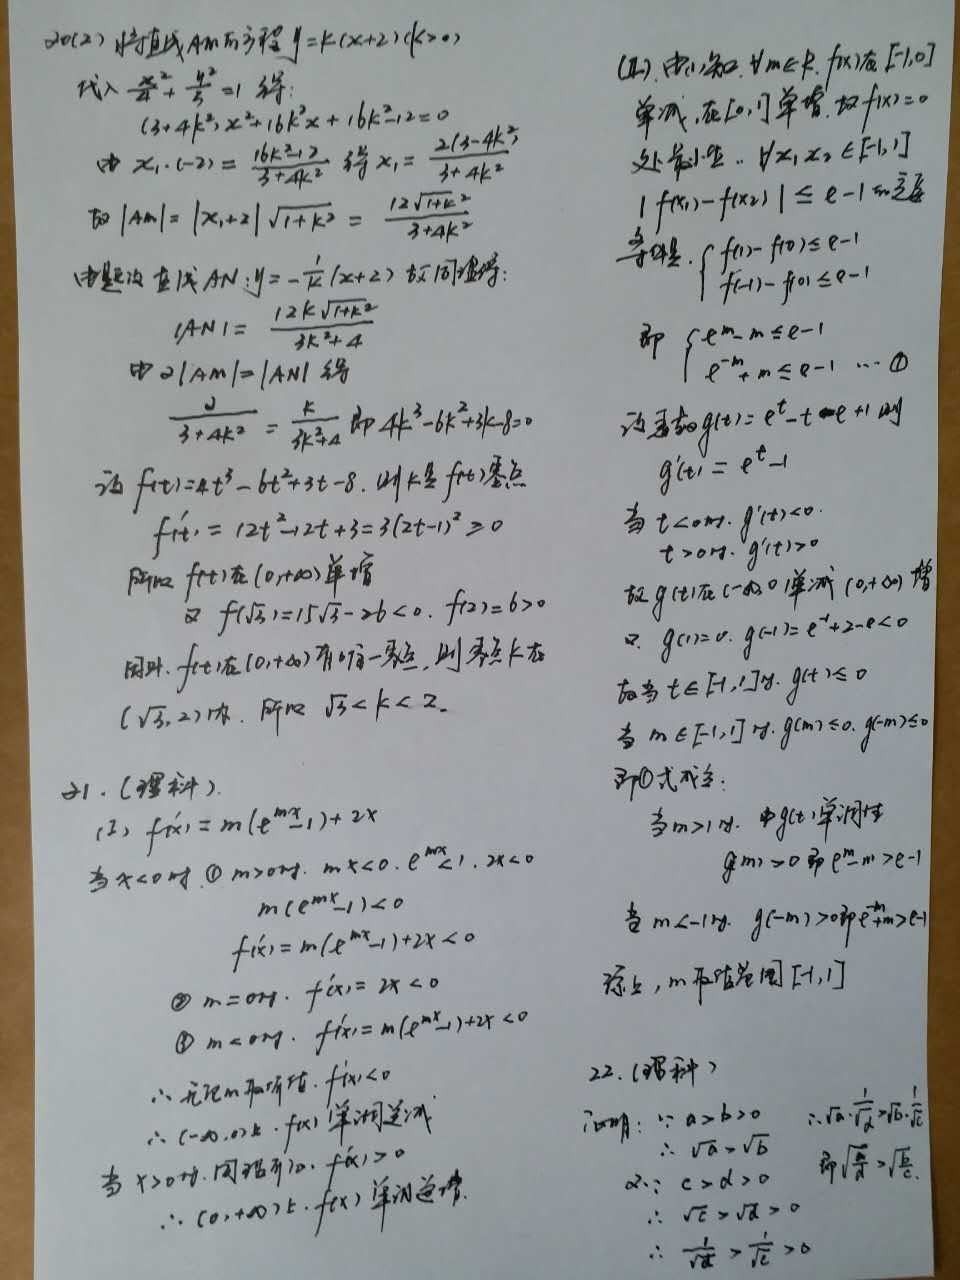 20(2) 将直线AM的方程 y=k(x+2)(k>0)
代入 x²/4+y²/3=1 得:
(3+4k²)x²+16k²x+16k²-12=0
由 x₁·(-2)=(16k²-12)/(3+4k²) 得 x₁=2(3-4k²)/(3+4k²)
故|AM|=|x₁+2|√(1+k²)=12√(1+k²)/(3+4k²)
由题设 直线AN:y=-1/k(x+2) 故同理得:
|AN|=12k√(1+k²)/(3k²+4)
由2|AM|=|AN| 得
2/(3+4k²)=k/(3k²+4) 即 4k³-6k²+3k-8=0
设 f(t)=4t³-6t²+3t-8. 则k是f(t)零点
f'(t)=12t²-12t+3=3(2t-1)²≥0
所以 f(t)在(0,+∞)单增
又 f(√3)=15√3-26<0. f(2)=6>0
因此. f(t)在(0,+∞)有唯一零点, 则零点k在
(√3,2)内. 所以 √3<k<2.
21.(理科).
(I) f'(x)=m(e^{mx}-1)+2x
当x<0时.① m>0时. mx<0. e^{mx}<1. 2x<0
m(e^{mx}-1)<0
f'(x)=m(e^{mx}-1)+2x<0
② m=0时. f'(x)=2x<0
③ m<0时. f'(x)=m(e^{mx}-1)+2x<0
∴ 无论m取何值. f'(x)<0
∴ (-∞,0)上. f(x) 单调递减
当 x>0时. 同理可知. f'(x)>0
∴ (0,+∞)上. f(x) 单调递增.
(II). 由(1)知. ∀m∈R. f(x)在[-1,0]
单减,在[0,1]单增. 故f(x)=0
处最小值.. ∀x₁x₂∈[-1,1]
|f(x₁)-f(x₂)|≤e-1的充要
条件是. { f(1)-f(0)≤e-1
f(-1)-f(0)≤e-1
即 { e^m-m≤e-1
e^{-m}+m≤e-1 …①
设函数g(t)=e^t-t-e+1 则
g'(t)=e^t-1
当 t<0时. g'(t)<0.
t>0时. g'(t)>0
故g(t)在(-∞,0)单减 (0,+∞)增
又. g(1)=0. g(-1)=e^{-1}+2-e<0
故当 t∈[-1,1]时. g(t)≤0
当 m∈[-1,1]时. g(m)≤0. g(-m)≤0
即①式成立:
当m>1时. 由g(t)单调性
g(m)>0 即 e^m-m>e-1
当 m<-1时. g(-m)>0即e^{-m}+m>e-1
综上, m取值范围[-1,1]
22.(理科)
证明: ∵ a>b>0
∴ √a>√b
又∵ c>d>0
∴ √c>√d>0
∴ 1/√d>1/√c>0
∴√a·1/√d>√b·1/√c
即√(a/d)>√(b/c).